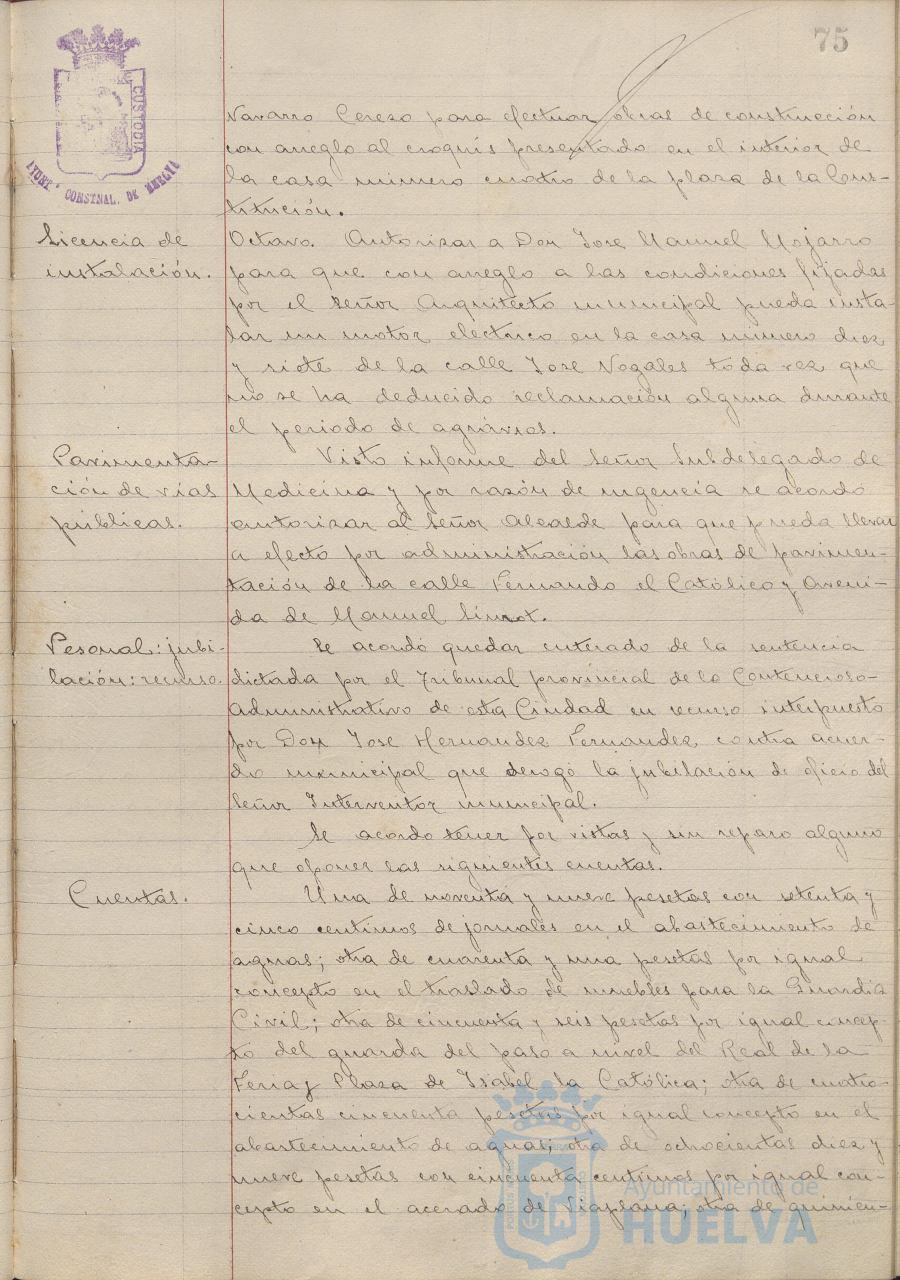 75
CUSTODIA
AYUNT° CONSTNAL. DE HUELVA
Navarro Cerezo para efectuar obras de construcción
con arreglo al croquis presentado en el interior de
la casa número cuatro de la plaza de la Cons-
titución.
Licencia de
instalación.
Octavo. Autorizar a Don Jose Manuel Mojarro
para que con arreglo a las condiciones fijadas
por el señor Arquitecto municipal pueda insta-
lar un motor electrico en la casa número diez
y siete de la calle Jose Nogales toda vez que
no se ha deducido reclamación alguna durante
el periodo de agravios.
Pavimenta-
ción de vias
públicas.
Visto informe del Señor Subdelegado de
Medicina y por razón de urgencia se acordó
autorizar al Señor Alcalde para que pueda llevar
a efecto por administración las obras de pavimen-
tación de la calle Fernando el Católico y Aveni-
da de Manuel Siurot.
Pesonal: jubi-
lación: recurso.
Se acordó quedar enterado de la sentencia
dictada por el Tribunal provincial de lo Contencioso-
Administrativo de esta Ciudad en recurso interpuesto
por Don Jose Hernandez Fernandez, contra acuer-
do municipal que derogó la jubilación de oficio del
Señor Interventor municipal.
Se acordo tener por vistas y sin reparo alguno
que oponer las siguientes cuentas.
Cuentas.
Una de noventa y nueve pesetas con setenta y
cinco centimos de jornales en el abastecimiento de
aguas; otra de cuarenta y una pesetas por igual
concepto en el traslado de muebles para la Guardia
Civil; otra de cincuenta y seis pesetas por igual concep-
to del guarda del paso a nivel del Real de la
Feria y Plaza de Isabel la Católica; otra de cuatro-
cientas cincuenta pesetas por igual concepto en el
abastecimiento de aguas; otra de ochocientas diez y
nueve pesetas con cincuenta centimos por igual con-
cepto en el acerado de Viaplana; otra de quinien-
Ayuntamiento de
HUELVA